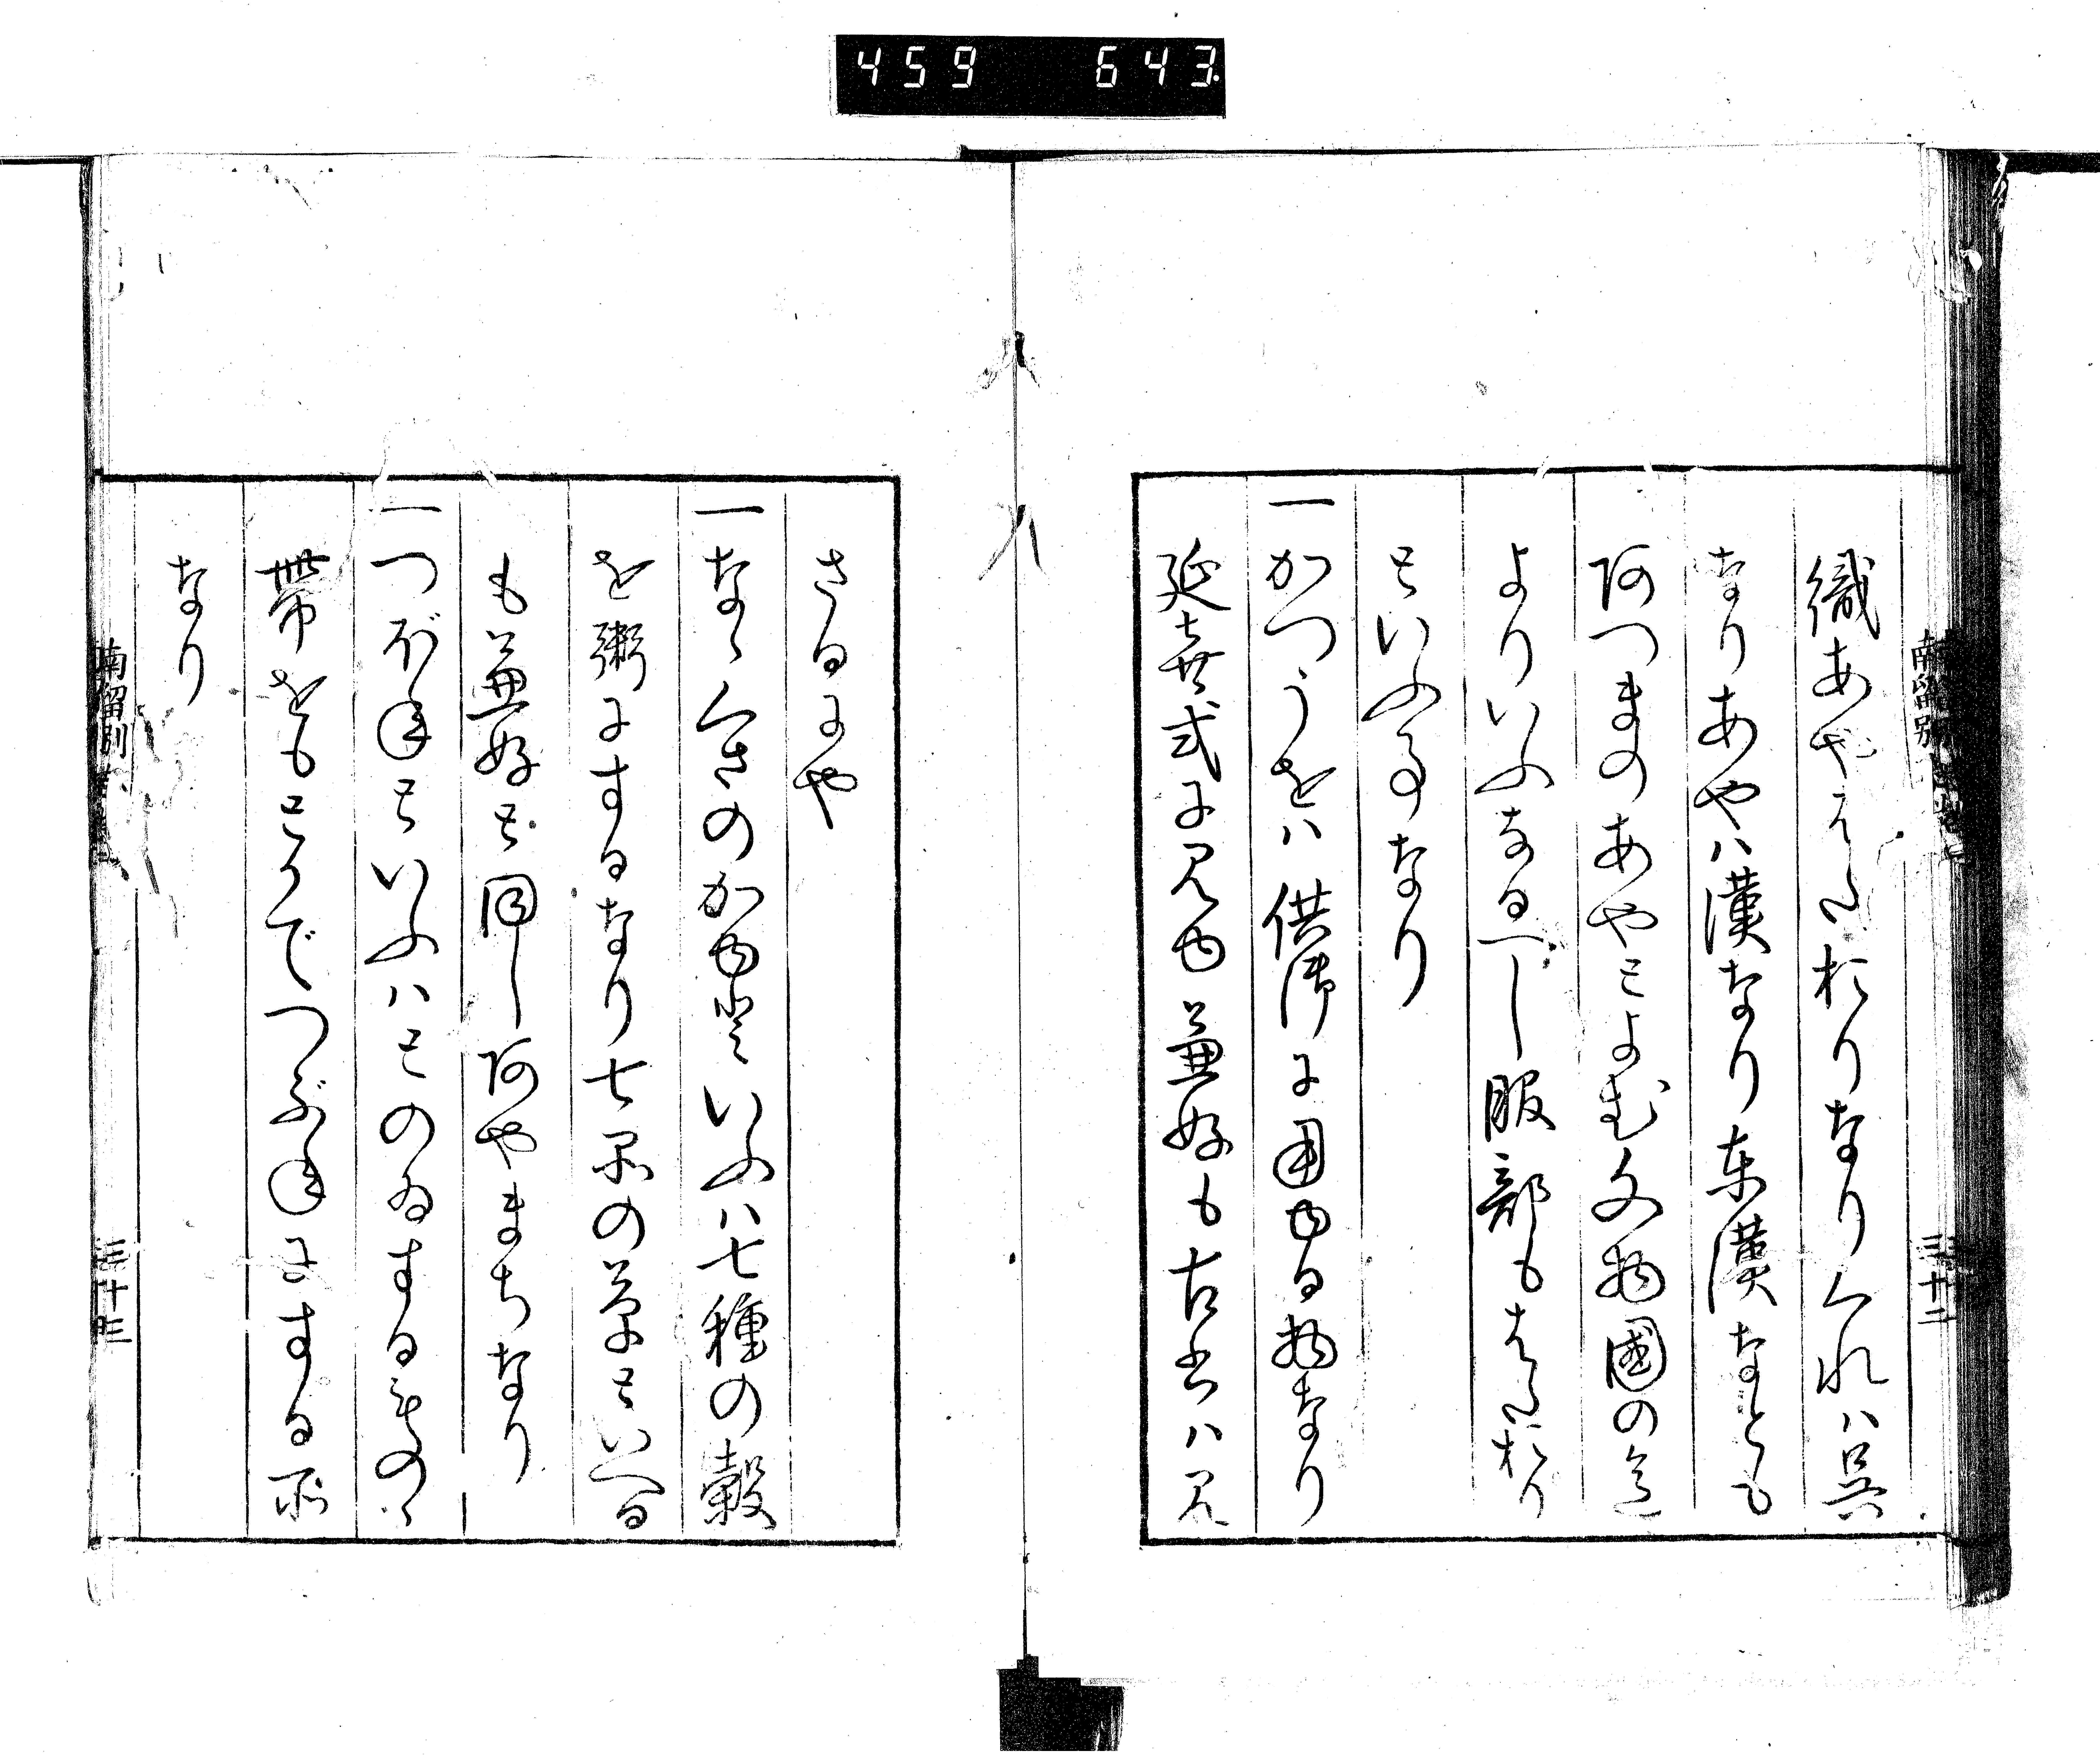 459 643
織あやはたおりなりくれハ呉
なりあやハ漢なり東漢なとも
阿つまのあやとよむ文物國の名
よりいふなるへし服部もはたおり
といふ事なり
一かつうをハ供御に用ゆる物なり
延喜式に見ゆ兼好も古書ハ見
さるにや
一なゝくさのかゆといふハ七種の穀
を粥にするなり七所の草といへる
も兼好と同し阿やまちなり
一つぶねといふハとのゐするものゝ
帯をもとかでつぶねにする所
なり
三十二
三十三